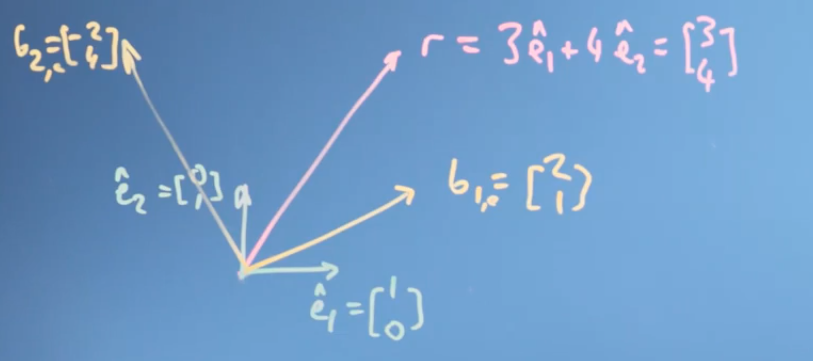 b₂,ₑ=[-2 4]
r = 3ê₁+4ê₂ = [3 4]
ê₂ =[0 1]
b₁,ₑ= [2 1]
ê₁ =[1 0]